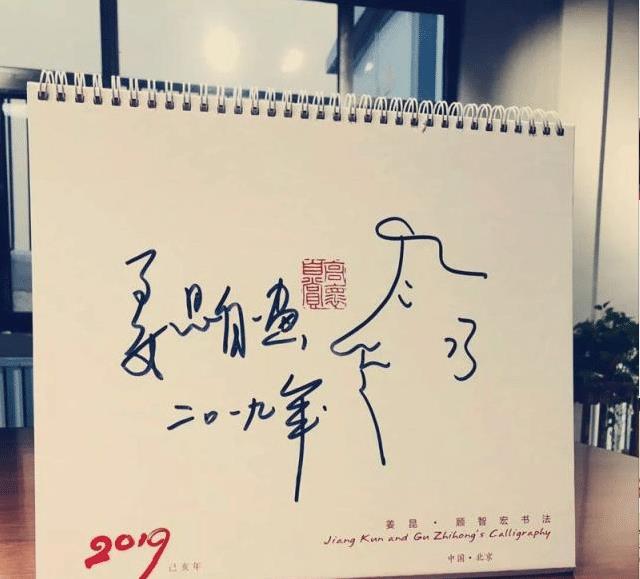 姜昆自画,
二〇一九年
2019
己亥年
姜昆·顾智宏书法
Jiang Kun and Gu Zhihong's Calligraphy
中国·北京